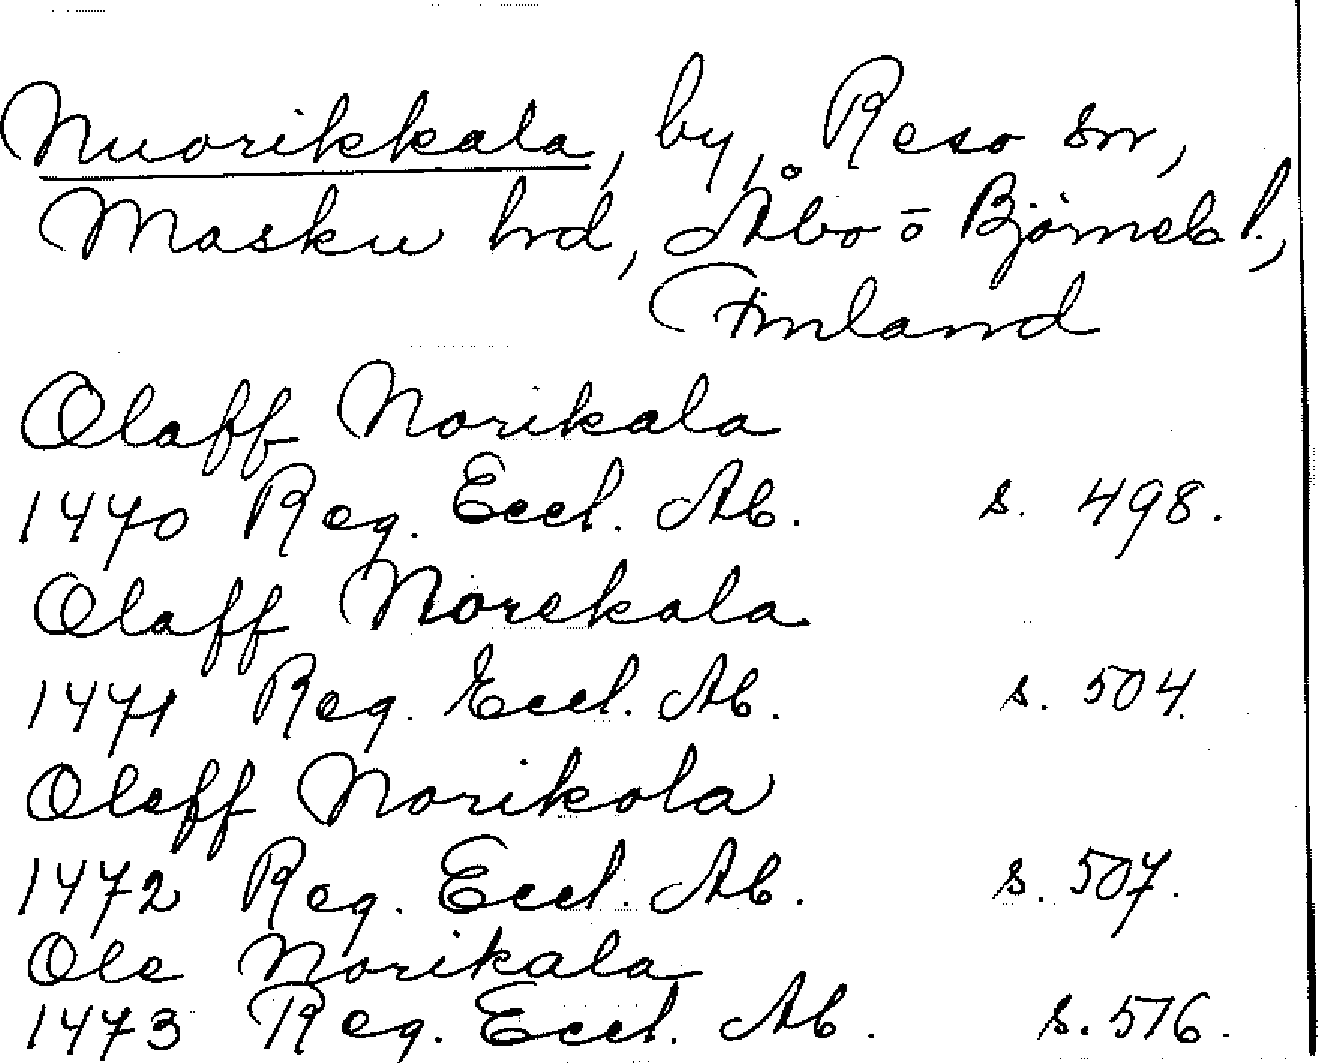 Nuorikkala, by, Reso sn,
Masku hrd, Åbo o Björneb l.,
Finland
Olaff Norikala
1470 Reg. Eccl. Ab. s. 498.
Olaff Norekala
1471 Reg. Eccl. Ab. s. 504.
Oleff Norikola
1472 Reg. Eccl. Ab. s. 507.
Ole Norikala
1473 Reg. Eccl. Ab. s. 516.